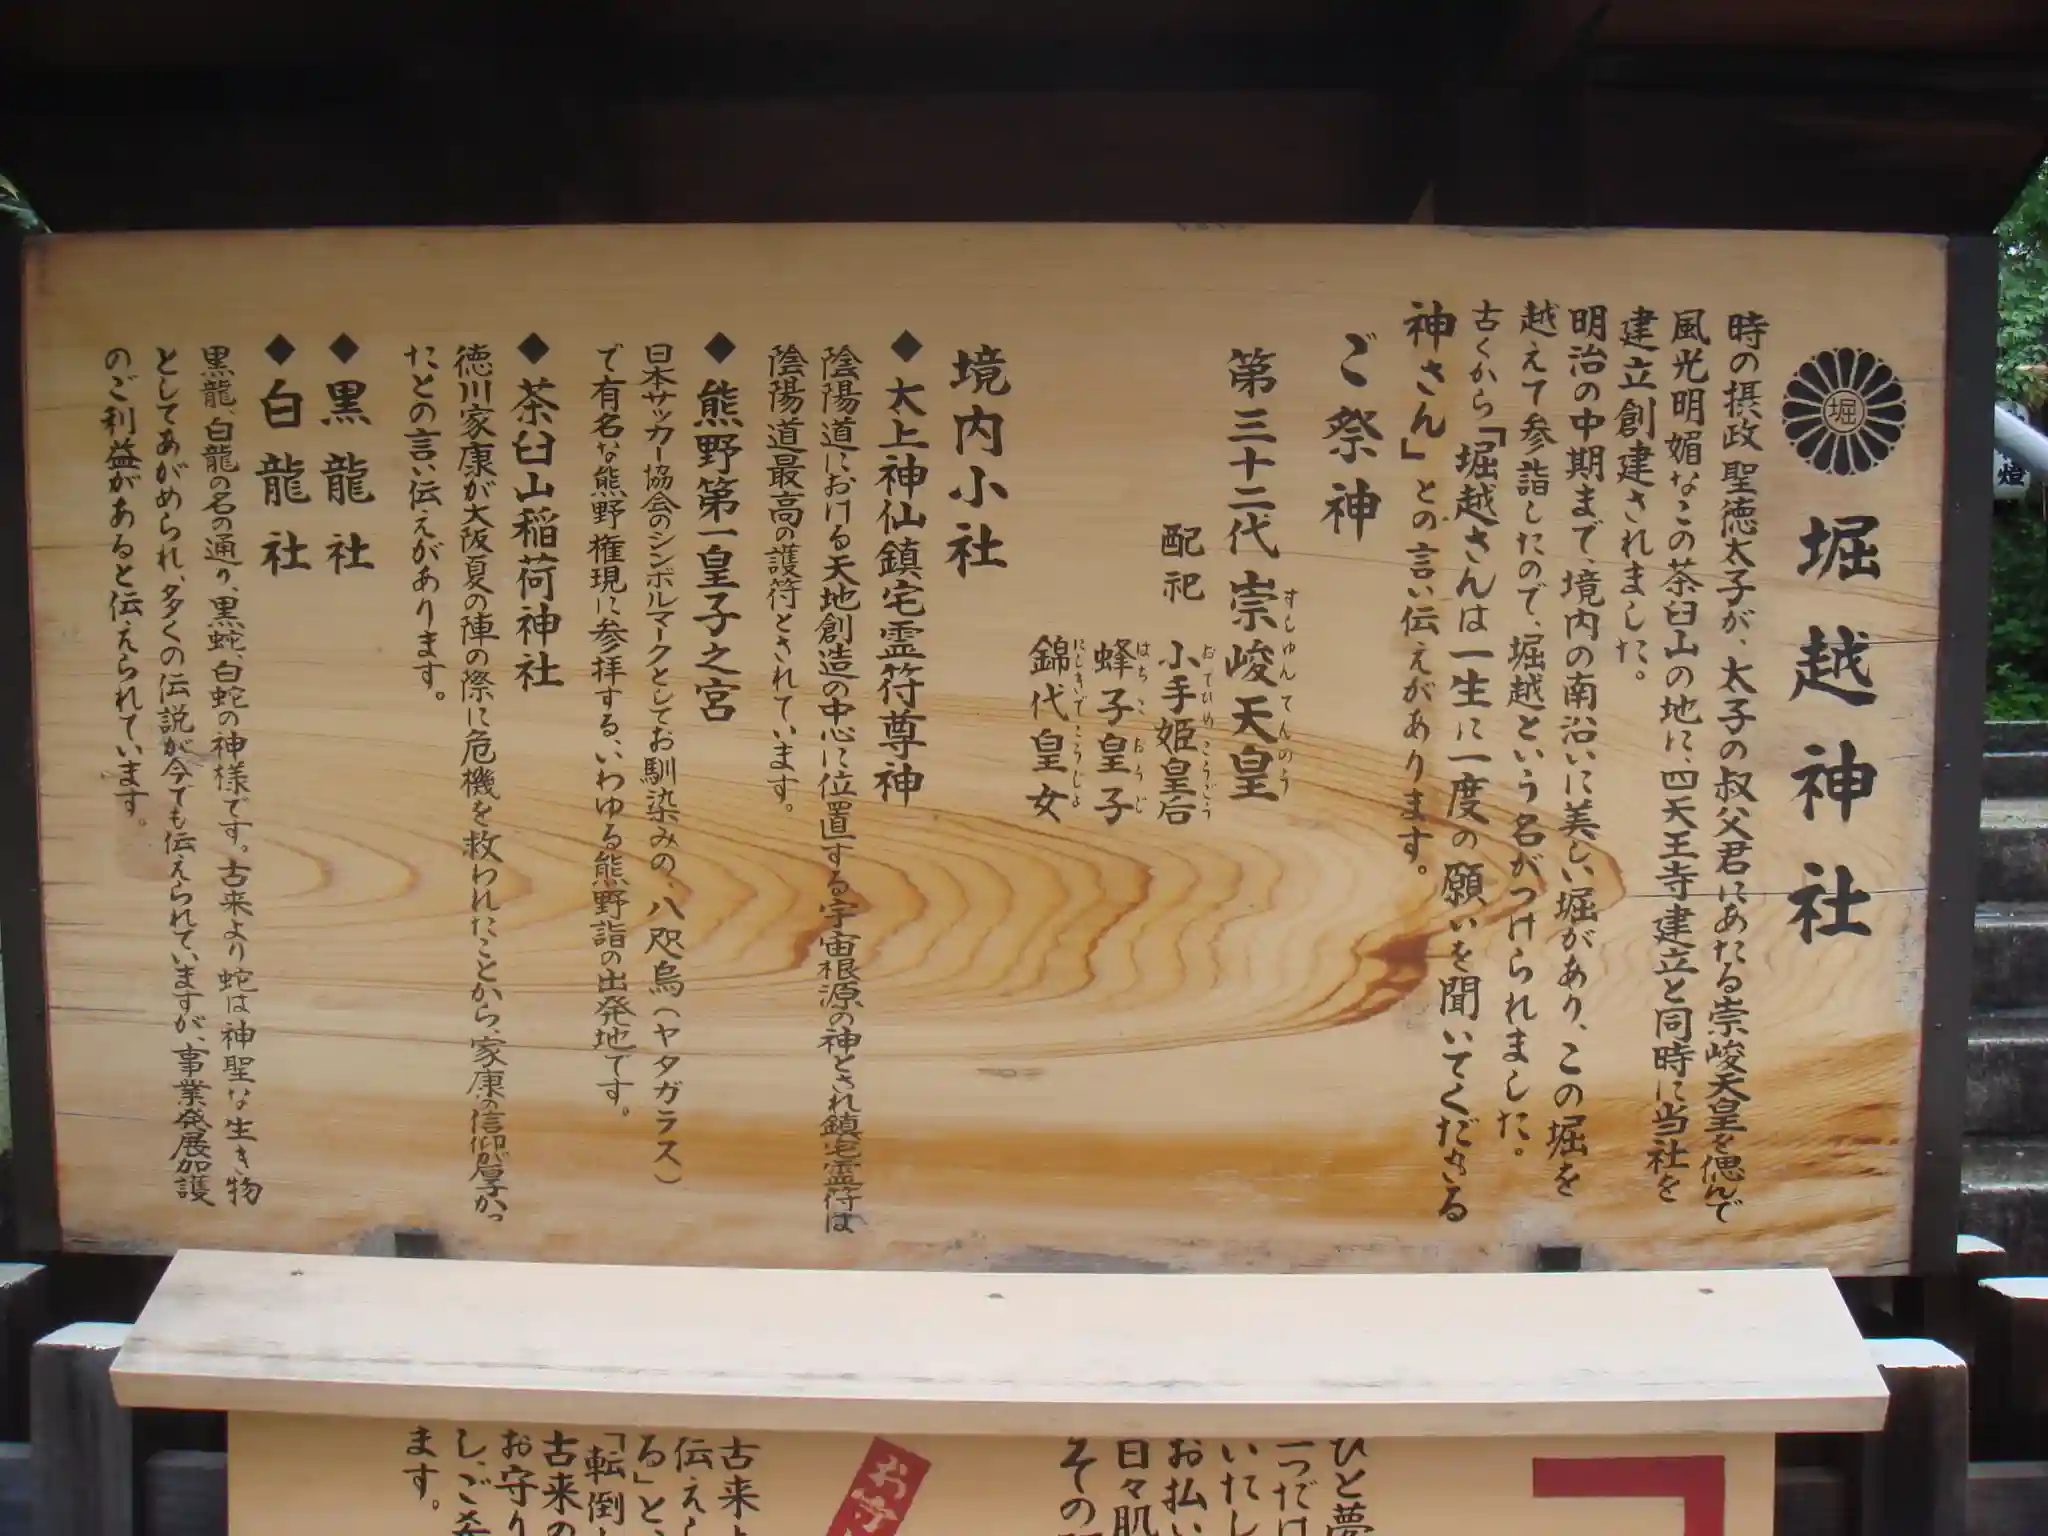 堀
堀越神社
時の摂政聖徳太子が、太子の叔父君にあたる崇峻天皇を偲んで
風光明媚なこの茶臼山の地に、四天王寺建立と同時に当社を
建立創建されました。
明治の中期まで、境内の南沿いに美しい堀があり、この堀を
越えて参詣したので、堀越という名がつけられました。
古くから「堀越さんは一生に一度の願いを聞いてくださる
神さん」との言い伝えがあります。
ご祭神
第三十二代 崇峻天皇
すしゅんてんのう
配祀 小手姫皇后
おてひめこうごう
蜂子皇子
はちこおうじ
錦代皇女
にしきでこうじょ
境内小社
◆太上神仙鎮宅霊符尊神
陰陽道における天地創造の中心に位置する宇宙根源の神とされ鎮宅霊符は
陰陽道最高の護符とされています。
◆熊野第一皇子之宮
日本サッカー協会のシンボルマークとしてお馴染みの、八咫烏(ヤタガラス)
で有名な熊野権現に参拝する、いわゆる熊野詣の出発地です。
◆茶臼山稲荷神社
徳川家康が大阪夏の陣の際に危機を救われたことから、家康の信仰が厚かっ
たとの言い伝えがあります。
◆黒龍社
◆白龍社
黒龍、白龍の名の通り、黒蛇、白蛇の神様です。古来より蛇は神聖な生き物
としてあがめられ、多くの伝説が今でも伝えられていますが、事業発展加護
のご利益があると伝えられています。
ひと夢
一つだけ
いたし
お払い
日々肌
その
お守
古来よ
伝えら
る」と、
「転倒
古来の
お守り
し、ご
ます。